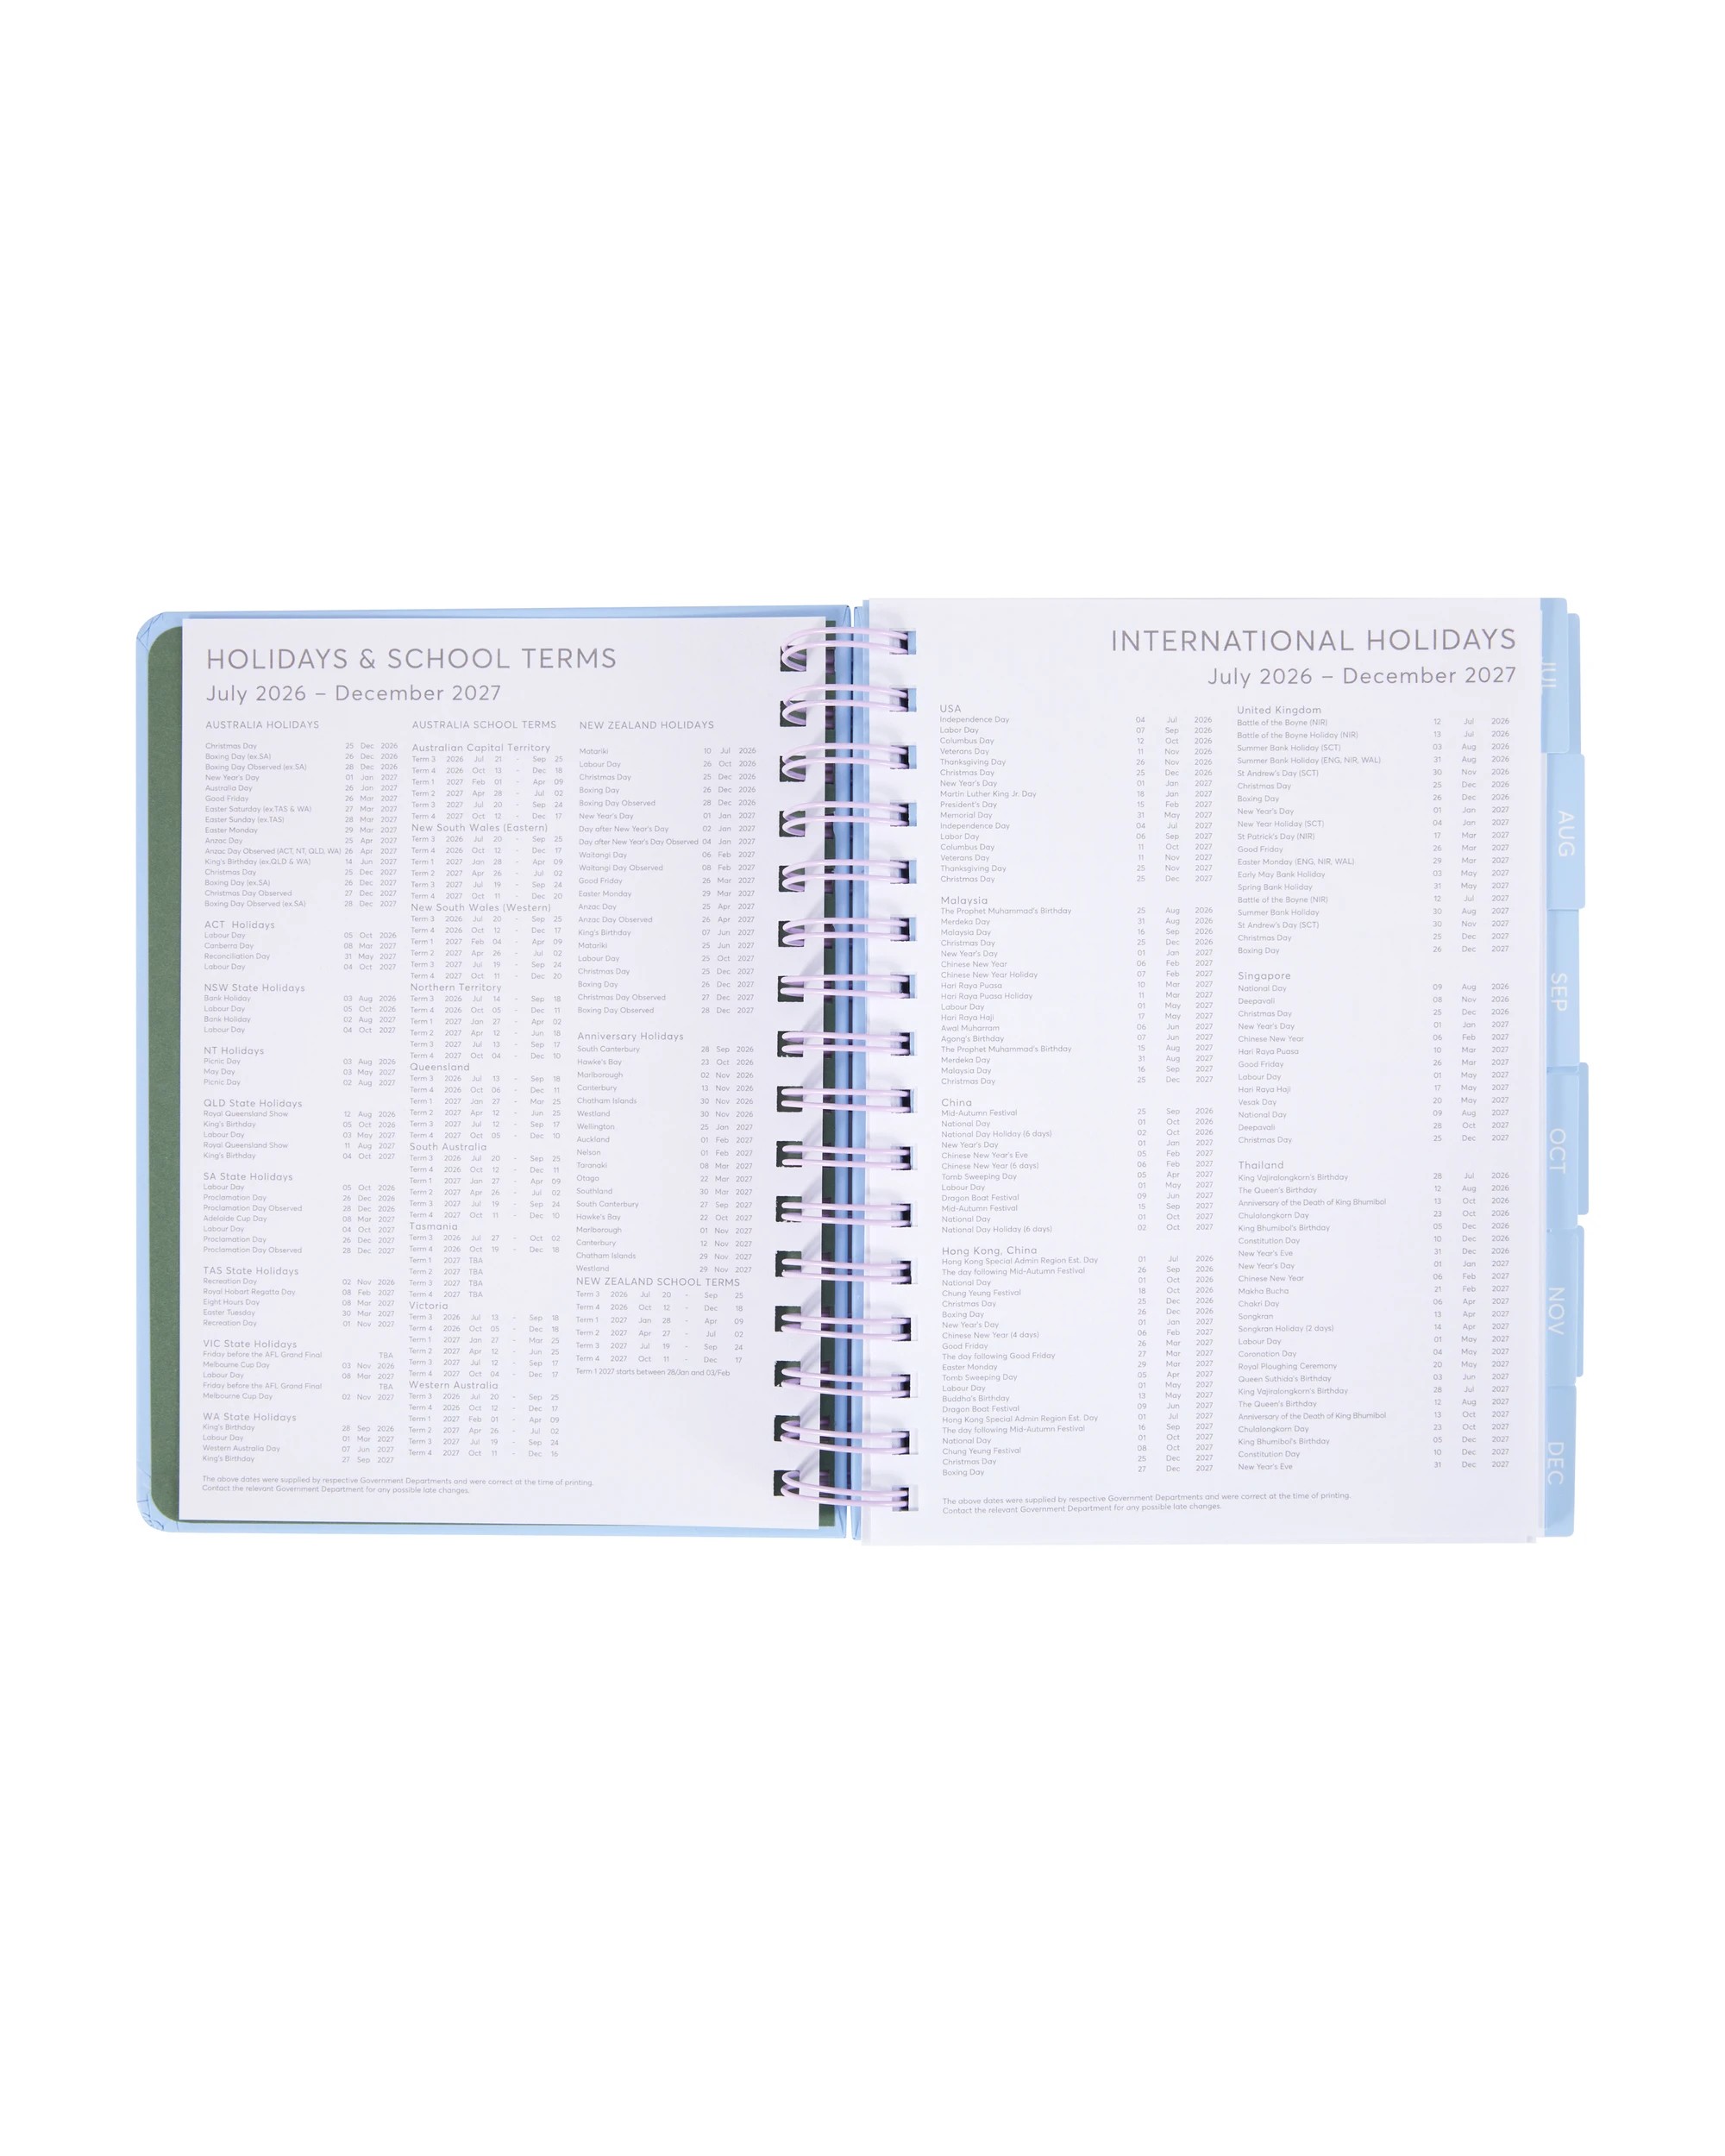 HOLIDAYS & SCHOOL TERMS
July 2026 – December 2027
AUSTRALIA HOLIDAYS
Christmas Day 25 Dec 2026
Boxing Day (ex.SA) 26 Dec 2026
Boxing Day Observed (ex.SA) 28 Dec 2026
New Year's Day 01 Jan 2027
Australia Day 26 Jan 2027
Good Friday 26 Mar 2027
Easter Saturday (ex.TAS & WA) 27 Mar 2027
Easter Sunday (ex.TAS) 28 Mar 2027
Easter Monday 29 Mar 2027
Anzac Day 25 Apr 2027
Anzac Day Observed (ACT, NT, QLD, WA) 26 Apr 2027
King's Birthday (ex.QLD & WA) 14 Jun 2027
Christmas Day 25 Dec 2027
Boxing Day (ex.SA) 26 Dec 2027
Christmas Day Observed 27 Dec 2027
Boxing Day Observed (ex.SA) 28 Dec 2027
ACT Holidays
Labour Day 05 Oct 2026
Canberra Day 08 Mar 2027
Reconciliation Day 31 May 2027
Labour Day 04 Oct 2027
NSW State Holidays
Bank Holiday 03 Aug 2026
Labour Day 05 Oct 2026
Bank Holiday 02 Aug 2027
Labour Day 04 Oct 2027
NT Holidays
Picnic Day 03 Aug 2026
May Day 03 May 2027
Picnic Day 02 Aug 2027
QLD State Holidays
Royal Queensland Show 12 Aug 2026
King's Birthday 05 Oct 2026
Labour Day 03 May 2027
Royal Queensland Show 11 Aug 2027
King's Birthday 04 Oct 2027
SA State Holidays
Labour Day 05 Oct 2026
Proclamation Day 26 Dec 2026
Proclamation Day Observed 28 Dec 2026
Adelaide Cup Day 08 Mar 2027
Labour Day 04 Oct 2027
Proclamation Day 26 Dec 2027
Proclamation Day Observed 28 Dec 2027
TAS State Holidays
Recreation Day 02 Nov 2026
Royal Hobart Regatta Day 08 Feb 2027
Eight Hours Day 08 Mar 2027
Easter Tuesday 30 Mar 2027
Recreation Day 01 Nov 2027
VIC State Holidays
Friday before the AFL Grand Final TBA
Melbourne Cup Day 03 Nov 2026
Labour Day 08 Mar 2027
Friday before the AFL Grand Final TBA
Melbourne Cup Day 02 Nov 2027
WA State Holidays
King's Birthday 28 Sep 2026
Labour Day 01 Mar 2027
Western Australia Day 07 Jun 2027
King's Birthday 27 Sep 2027
AUSTRALIA SCHOOL TERMS
Australian Capital Territory
Term 3 2026 Jul 21 - Sep 25
Term 4 2026 Oct 13 - Dec 18
Term 1 2027 Feb 01 - Apr 09
Term 2 2027 Apr 28 - Jul 02
Term 3 2027 Jul 20 - Sep 24
Term 4 2027 Oct 12 - Dec 17
New South Wales (Eastern)
Term 3 2026 Jul 20 - Sep 25
Term 4 2026 Oct 12 - Dec 17
Term 1 2027 Jan 28 - Apr 09
Term 2 2027 Apr 26 - Jul 02
Term 3 2027 Jul 19 - Sep 24
Term 4 2027 Oct 11 - Dec 20
New South Wales (Western)
Term 3 2026 Jul 20 - Sep 25
Term 4 2026 Oct 12 - Dec 17
Term 1 2027 Feb 04 - Apr 09
Term 2 2027 Apr 26 - Jul 02
Term 3 2027 Jul 19 - Sep 24
Term 4 2027 Oct 11 - Dec 20
Northern Territory
Term 3 2026 Jul 14 - Sep 18
Term 4 2026 Oct 05 - Dec 11
Term 1 2027 Jan 27 - Apr 02
Term 2 2027 Apr 12 - Jun 18
Term 3 2027 Jul 13 - Sep 17
Term 4 2027 Oct 04 - Dec 10
Queensland
Term 3 2026 Jul 13 - Sep 18
Term 4 2026 Oct 06 - Dec 11
Term 1 2027 Jan 27 - Mar 25
Term 2 2027 Apr 12 - Jun 25
Term 3 2027 Jul 12 - Sep 17
Term 4 2027 Oct 05 - Dec 10
South Australia
Term 3 2026 Jul 20 - Sep 25
Term 4 2026 Oct 12 - Dec 11
Term 1 2027 Jan 27 - Apr 09
Term 2 2027 Apr 26 - Jul 02
Term 3 2027 Jul 19 - Sep 24
Term 4 2027 Oct 11 - Dec 10
Tasmania
Term 3 2026 Jul 27 - Oct 02
Term 4 2026 Oct 19 - Dec 18
Term 1 2027 TBA
Term 2 2027 TBA
Term 3 2027 TBA
Term 4 2027 TBA
Victoria
Term 3 2026 Jul 13 - Sep 18
Term 4 2026 Oct 05 - Dec 18
Term 1 2027 Jan 27 - Mar 25
Term 2 2027 Apr 12 - Jun 25
Term 3 2027 Jul 12 - Sep 17
Term 4 2027 Oct 04 - Dec 17
Western Australia
Term 3 2026 Jul 20 - Sep 25
Term 4 2026 Oct 12 - Dec 17
Term 1 2027 Feb 01 - Apr 09
Term 2 2027 Apr 26 - Jul 02
Term 3 2027 Jul 19 - Sep 24
Term 4 2027 Oct 11 - Dec 16
NEW ZEALAND HOLIDAYS
Matariki 10 Jul 2026
Labour Day 26 Oct 2026
Christmas Day 25 Dec 2026
Boxing Day 26 Dec 2026
Boxing Day Observed 28 Dec 2026
New Year's Day 01 Jan 2027
Day after New Year's Day 02 Jan 2027
Day after New Year's Day Observed 04 Jan 2027
Waitangi Day 06 Feb 2027
Waitangi Day Observed 08 Feb 2027
Good Friday 26 Mar 2027
Easter Monday 29 Mar 2027
Anzac Day 25 Apr 2027
Anzac Day Observed 26 Apr 2027
King's Birthday 07 Jun 2027
Matariki 25 Jun 2027
Labour Day 25 Oct 2027
Christmas Day 25 Dec 2027
Boxing Day 26 Dec 2027
Christmas Day Observed 27 Dec 2027
Boxing Day Observed 28 Dec 2027
Anniversary Holidays
South Canterbury 28 Sep 2026
Hawke's Bay 23 Oct 2026
Marlborough 02 Nov 2026
Canterbury 13 Nov 2026
Chatham Islands 30 Nov 2026
Westland 30 Nov 2026
Wellington 25 Jan 2027
Auckland 01 Feb 2027
Nelson 01 Feb 2027
Taranaki 08 Mar 2027
Otago 22 Mar 2027
Southland 30 Mar 2027
South Canterbury 27 Sep 2027
Hawke's Bay 22 Oct 2027
Marlborough 01 Nov 2027
Canterbury 12 Nov 2027
Chatham Islands 29 Nov 2027
Westland 29 Nov 2027
NEW ZEALAND SCHOOL TERMS
Term 3 2026 Jul 20 - Sep 25
Term 4 2026 Oct 12 - Dec 18
Term 1 2027 Jan 28 - Apr 09
Term 2 2027 Apr 27 - Jul 02
Term 3 2027 Jul 19 - Sep 24
Term 4 2027 Oct 11 - Dec 17
Term 1 2027 starts between 28/Jan and 03/Feb
The above dates were supplied by respective Government Departments and were correct at the time of printing.
Contact the relevant Government Department for any possible late changes.
INTERNATIONAL HOLIDAYS
July 2026 – December 2027
USA
Independence Day 04 Jul 2026
Labor Day 07 Sep 2026
Columbus Day 12 Oct 2026
Veterans Day 11 Nov 2026
Thanksgiving Day 26 Nov 2026
Christmas Day 25 Dec 2026
New Year's Day 01 Jan 2027
Martin Luther King Jr. Day 18 Jan 2027
President's Day 15 Feb 2027
Memorial Day 31 May 2027
Independence Day 04 Jul 2027
Labor Day 06 Sep 2027
Columbus Day 11 Oct 2027
Veterans Day 11 Nov 2027
Thanksgiving Day 25 Nov 2027
Christmas Day 25 Dec 2027
Malaysia
The Prophet Muhammad's Birthday 25 Aug 2026
Merdeka Day 31 Aug 2026
Malaysia Day 16 Sep 2026
Christmas Day 25 Dec 2026
New Year's Day 01 Jan 2027
Chinese New Year 06 Feb 2027
Chinese New Year Holiday 07 Feb 2027
Hari Raya Puasa 10 Mar 2027
Hari Raya Puasa Holiday 11 Mar 2027
Labour Day 01 May 2027
Hari Raya Haji 17 May 2027
Awal Muharram 06 Jun 2027
Agong's Birthday 07 Jun 2027
The Prophet Muhammad's Birthday 15 Aug 2027
Merdeka Day 31 Aug 2027
Malaysia Day 16 Sep 2027
Christmas Day 25 Dec 2027
China
Mid-Autumn Festival 25 Sep 2026
National Day 01 Oct 2026
National Day Holiday (6 days) 02 Oct 2026
New Year's Day 01 Jan 2027
Chinese New Year's Eve 05 Feb 2027
Chinese New Year (6 days) 06 Feb 2027
Tomb Sweeping Day 05 Apr 2027
Labour Day 01 May 2027
Dragon Boat Festival 09 Jun 2027
Mid-Autumn Festival 15 Sep 2027
National Day 01 Oct 2027
National Day Holiday (6 days) 02 Oct 2027
Hong Kong, China
Hong Kong Special Admin Region Est. Day 01 Jul 2026
The day following Mid-Autumn Festival 26 Sep 2026
National Day 01 Oct 2026
Chung Yeung Festival 18 Oct 2026
Christmas Day 25 Dec 2026
Boxing Day 26 Dec 2026
New Year's Day 01 Jan 2027
Chinese New Year (4 days) 06 Feb 2027
Good Friday 26 Mar 2027
The day following Good Friday 27 Mar 2027
Easter Monday 29 Mar 2027
Tomb Sweeping Day 05 Apr 2027
Labour Day 01 May 2027
Buddha's Birthday 13 May 2027
Dragon Boat Festival 09 Jun 2027
Hong Kong Special Admin Region Est. Day 01 Jul 2027
The day following Mid-Autumn Festival 16 Sep 2027
National Day 01 Oct 2027
Chung Yeung Festival 08 Oct 2027
Christmas Day 25 Dec 2027
Boxing Day 27 Dec 2027
United Kingdom
Battle of the Boyne (NIR) 12 Jul 2026
Battle of the Boyne Holiday (NIR) 13 Jul 2026
Summer Bank Holiday (SCT) 03 Aug 2026
Summer Bank Holiday (ENG, NIR, WAL) 31 Aug 2026
St Andrew's Day (SCT) 30 Nov 2026
Christmas Day 25 Dec 2026
Boxing Day 26 Dec 2026
New Year's Day 01 Jan 2027
New Year Holiday (SCT) 04 Jan 2027
St Patrick's Day (NIR) 17 Mar 2027
Good Friday 26 Mar 2027
Easter Monday (ENG, NIR, WAL) 29 Mar 2027
Early May Bank Holiday 03 May 2027
Spring Bank Holiday 31 May 2027
Battle of the Boyne (NIR) 12 Jul 2027
Summer Bank Holiday 30 Aug 2027
St Andrew's Day (SCT) 30 Nov 2027
Christmas Day 25 Dec 2027
Boxing Day 26 Dec 2027
Singapore
National Day 09 Aug 2026
Deepavali 08 Nov 2026
Christmas Day 25 Dec 2026
New Year's Day 01 Jan 2027
Chinese New Year 06 Feb 2027
Hari Raya Puasa 10 Mar 2027
Good Friday 26 Mar 2027
Labour Day 01 May 2027
Hari Raya Haji 17 May 2027
Vesak Day 20 May 2027
National Day 09 Aug 2027
Deepavali 28 Oct 2027
Christmas Day 25 Dec 2027
Thailand
King Vajiralongkorn's Birthday 28 Jul 2026
The Queen's Birthday 12 Aug 2026
Anniversary of the Death of King Bhumibol 13 Oct 2026
Chulalongkorn Day 23 Oct 2026
King Bhumibol's Birthday 05 Dec 2026
Constitution Day 10 Dec 2026
New Year's Eve 31 Dec 2026
New Year's Day 01 Jan 2027
Chinese New Year 06 Feb 2027
Makha Bucha 21 Feb 2027
Chakri Day 06 Apr 2027
Songkran 13 Apr 2027
Songkran Holiday (2 days) 14 Apr 2027
Labour Day 01 May 2027
Coronation Day 04 May 2027
Royal Ploughing Ceremony 20 May 2027
Queen Suthida's Birthday 03 Jun 2027
King Vajiralongkorn's Birthday 28 Jul 2027
The Queen's Birthday 12 Aug 2027
Anniversary of the Death of King Bhumibol 13 Oct 2027
Chulalongkorn Day 23 Oct 2027
King Bhumibol's Birthday 05 Dec 2027
Constitution Day 10 Dec 2027
New Year's Eve 31 Dec 2027
The above dates were supplied by respective Government Departments and were correct at the time of printing.
Contact the relevant Government Department for any possible late changes.
JUL
AUG
SEP
OCT
NOV
DEC